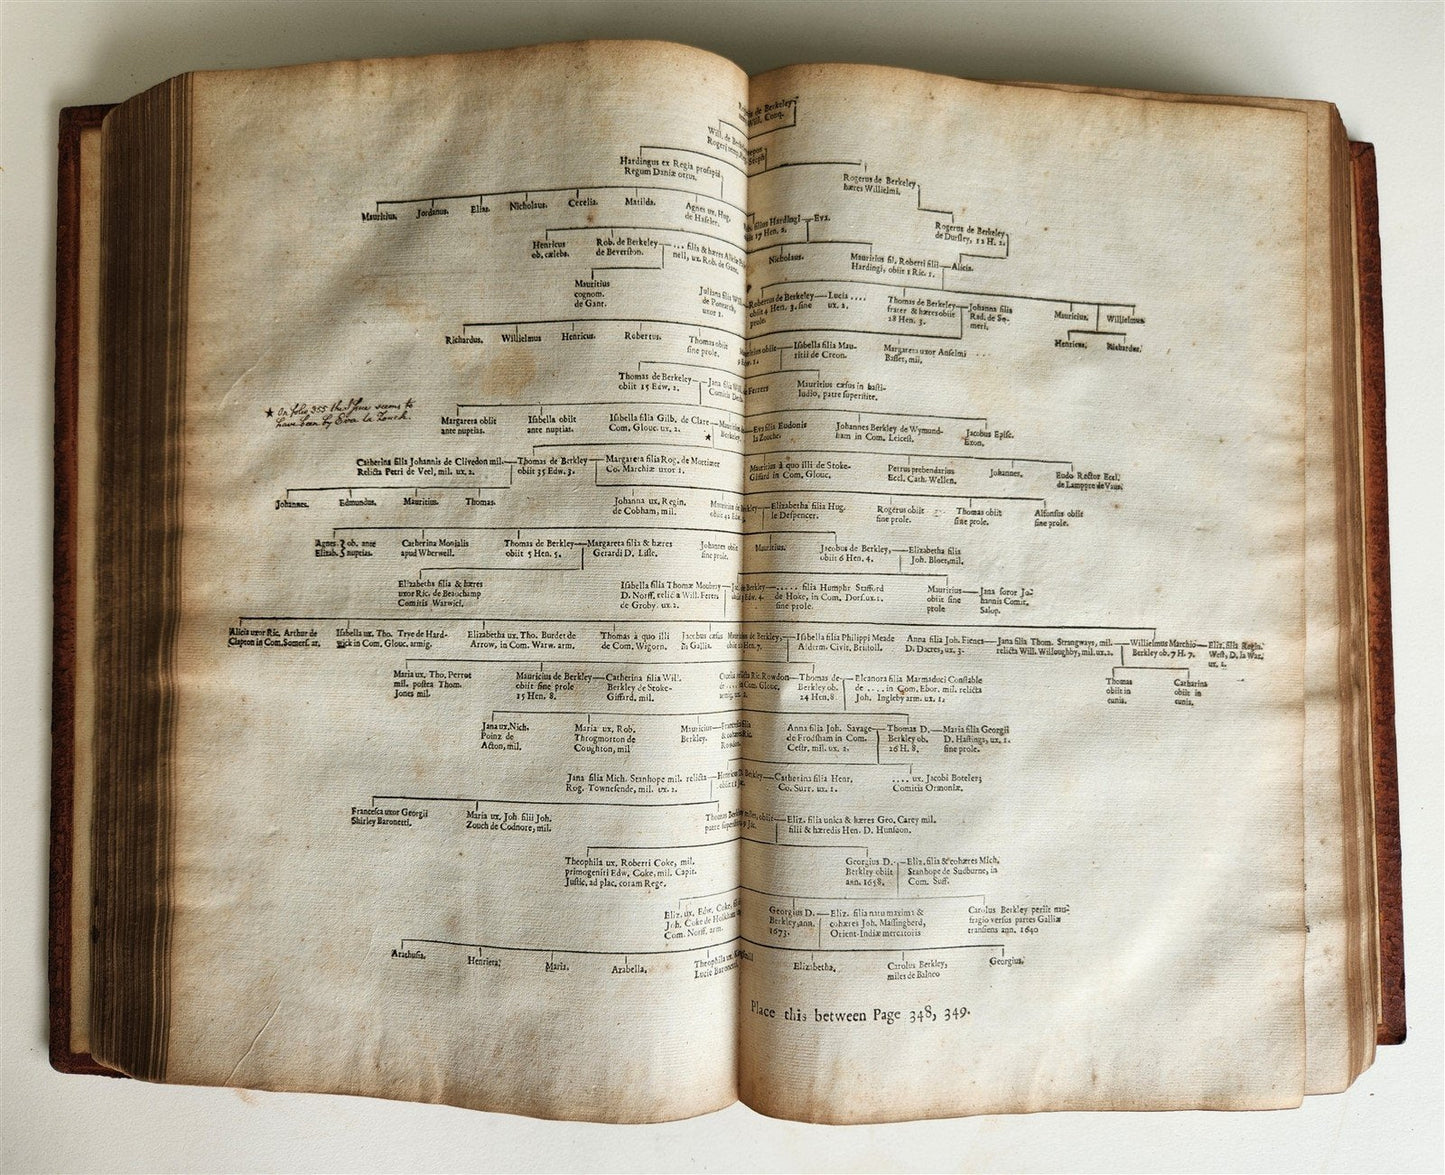 de Berkeley
Will. Conq.
Will. de
Rogeri
Hardingus ex Regia prosapia
Regum Daniæ ortus.
Rogerus de Berkeley
hæres Willielmi.
Mauritius.
Jordanus.
Elias.
Nicholaus.
Cecelia.
Matilda.
Agnes ux. Hug.
de Haseler.
filius Hardingi
17 Hen. 2.
Eva.
Rogerus de Berkeley
de Dursley, 12 H. 2.
Henricus
ob. cælebs.
Rob. de Berkeley
de Beverston.
.... filia & hæres Aliciæ
nell, ux. Rob. de Gant.
Nicholaus.
Mauritius fil. Roberti filii
Hardingi, obiit 1 Ric. 1.
Alicia.
Mauritius
cognom.
de Gant.
Juliana filia
de
uxor 1.
Robertus de Berkeley
obiit 4 Hen. 3. sine
prole.
Lucia ....
ux. 2.
Thomas de Berkeley
frater & hæres obiit
28 Hen. 3.
Johanna filia
Rad. de So-
meri.
Mauritius,
Willielmus
Henricus,
Richardus.
Richardus.
Willielmus
Henricus.
Robertus.
Thomas obiit
sine prole.
obiit
Isabella filia Mau-
ritii de Creon.
Margareta uxor Anselmi
Basset, mil.
Thomas de Berkeley
obiit 15 Edw. 2.
Jana filia
Comitis
de Ferrers
Mauritius cæsus in hasti-
ludio, patre superstite.
★ On folio 355 this Jane seems to
have been by Eva la Zouch.
Margareta obiit
ante nuptias.
Isabella obiit
ante nuptias.
Isabella filia Gilb. de Clare
Com. Glouc. ux. 2.
★
Berkeley.
Eva filia Eudonis
la Zouche.
Johannes Berkeley de Wymund-
ham in Com. Leicest.
Jacobus Episc.
Exon.
Catherina filia Johannis de Clivedon mil.
Relicta Petri de Veel, mil. ux. 2.
Thomas de Berkley
obiit 35 Edw. 3.
Margareta filia Rog. de Mortimer
Co. Marchiæ uxor 1.
Mauritius à quo illi de Stoke-
Giffard in Com. Glouc.
Petrus prebendarius
Eccl. Cath. Wellen.
Johannes.
Eudo Rector Eccl.
de Lampore de Vaus.
Johannes.
Edmundus.
Mauritius.
Thomas.
Johanna ux. Regin.
de Cobham, mil.
Mauritius
obiit
Elizabetha filia Hug.
le Despencer.
Rogerus obiit
sine prole.
Thomas obiit
sine prole.
Alfonsus obiit
sine prole.
Agnes } ob. ante
Elizab. } nuptias.
Catherina Monialis
apud Wherwell.
Thomas de Berkley
obiit 5 Hen. 5.
Margareta filia & hæres
Gerardi D. Lisle.
Johannes obiit
sine prole.
Mauritius.
Jacobus de Berkley,
obiit 6 Hen. 4.
Elizabetha filia
Joh. Bloet, mil.
Elizabetha filia & hæres
uxor Ric. de Beauchamp
Comitis Warwici.
Isabella filia Thomæ Moubray
D. Norff. relicta Will. Ferrers
de Groby. ux. 2.
de Berkley
Edw. 4.
..... filia Humphr Stafford
de Hoke, in Com. Dorf. ux. 1.
sine prole.
Mauritius
obiit sine
prole
Jana soror Jo-
hannis Comit.
Salop.
Alicia uxor Ric. Arthur de
Clapton in Com. Somers. ar.
Isabella ux. Tho. Trye de Hard-
wick in Com. Glouc. armig.
Elizabetha ux. Tho. Burdet de
Arrow, in Com. Warw. arm.
Thomas à quo illi
de Com. Wigorn.
Jacobus cæsus
in Gallia.
Mauritius de Berkley,
Hen. 7.
Isabella filia Philippi Meade
Alderm. Civit. Bristoll.
Anna filia Joh. Fienes
D. Dacres, ux. 3.
Jana filia Thom. Strangways, mil.
relicta Will. Willoughby, mil. ux. 2.
Willielmus Marchio
Berkeley ob. 7 H. 7.
Eliz. filia Regin.
West, D. la War.
ux. 1.
Maria ux. Tho. Perrot
mil. postea Thom.
Jones mil.
Mauricius de Berkley
obiit sine prole
15 Hen. 8.
Catherina filia Will.
Berkley de Stoke-
Giffard, mil.
relicta Ric. Rowdon
Com. Glouc.
Thomas de
Berkley ob.
24 Hen. 8.
Eleanora filia Marmaduci Constable
de .... in Com. Ebor. mil. relicta
Joh. Ingleby arm. ux. 1.
Thomas
obiit in
cunis.
Catharina
obiit in
cunis.
Jana ux. Nich.
Poinz de
Acton, mil.
Maria ux. Rob.
Throgmorton de
Coughton, mil
Mauricius
Berkley.
filia
Ric.
Anna filia Joh. Savage
de Frodsham in Com.
Cestr. mil. ux. 2.
Thomas D.
Berkley ob.
26 H. 8.
Maria filia Georgii
D. Hastings, ux. 1.
sine prole.
Jana filia Mich. Stanhope mil. relicta
Rog. Townesende, mil. ux. 2.
Berkley
Catherina filia Henr.
Co. Surr. ux. 1.
.... ux. Jacobi Boteler;
Comitis Ormoniæ.
Francesca uxor Georgii
Shirley Baronetti.
Maria ux. Joh. filii Joh.
Zouch de Codnore, mil.
Thomas Berkley miles, obiit
patre
Eliz. filia unica & hæres Geo. Carey mil.
filii & hæredis Hen. D. Hunsdon.
Theophila ux. Roberti Coke, mil.
primogeniti Edw. Coke, mil. Capit.
Justic. ad plac. coram Rege.
Georgius D.
Berkley obiit
ann. 1658.
Eliz. filia & cohæres Mich.
Stanhope de Sudburne, in
Com. Suff.
Eliz. ux. Edw. Coke,
Joh. Coke de Holkham
Com. Norff. arm.
Georgius D.
Berkley, ann.
1673.
Eliz. filia natu maxima &
cohæres Joh. Massingberd,
Orient-Indiæ mercatoris
Carolus Berkley periit nau-
fragio versus partes Galliæ
transiens ann. 1640
Arathusia.
Henriera.
Maria.
Arabella.
Theophila ux.
Lucie Baronetti.
Elizabetha.
Carolus Berkley,
miles de Balneo
Georgius.
Place this between Page 348, 349.